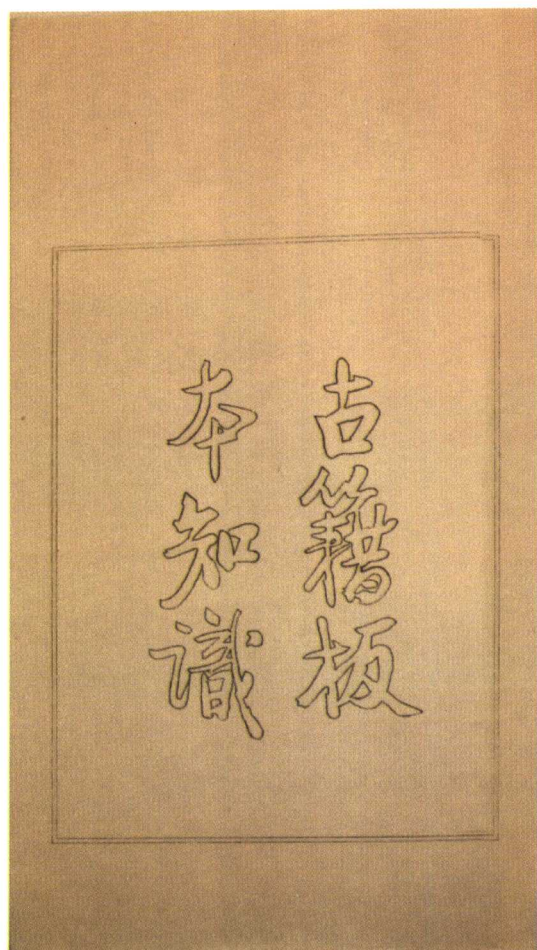 古籍板
本知識